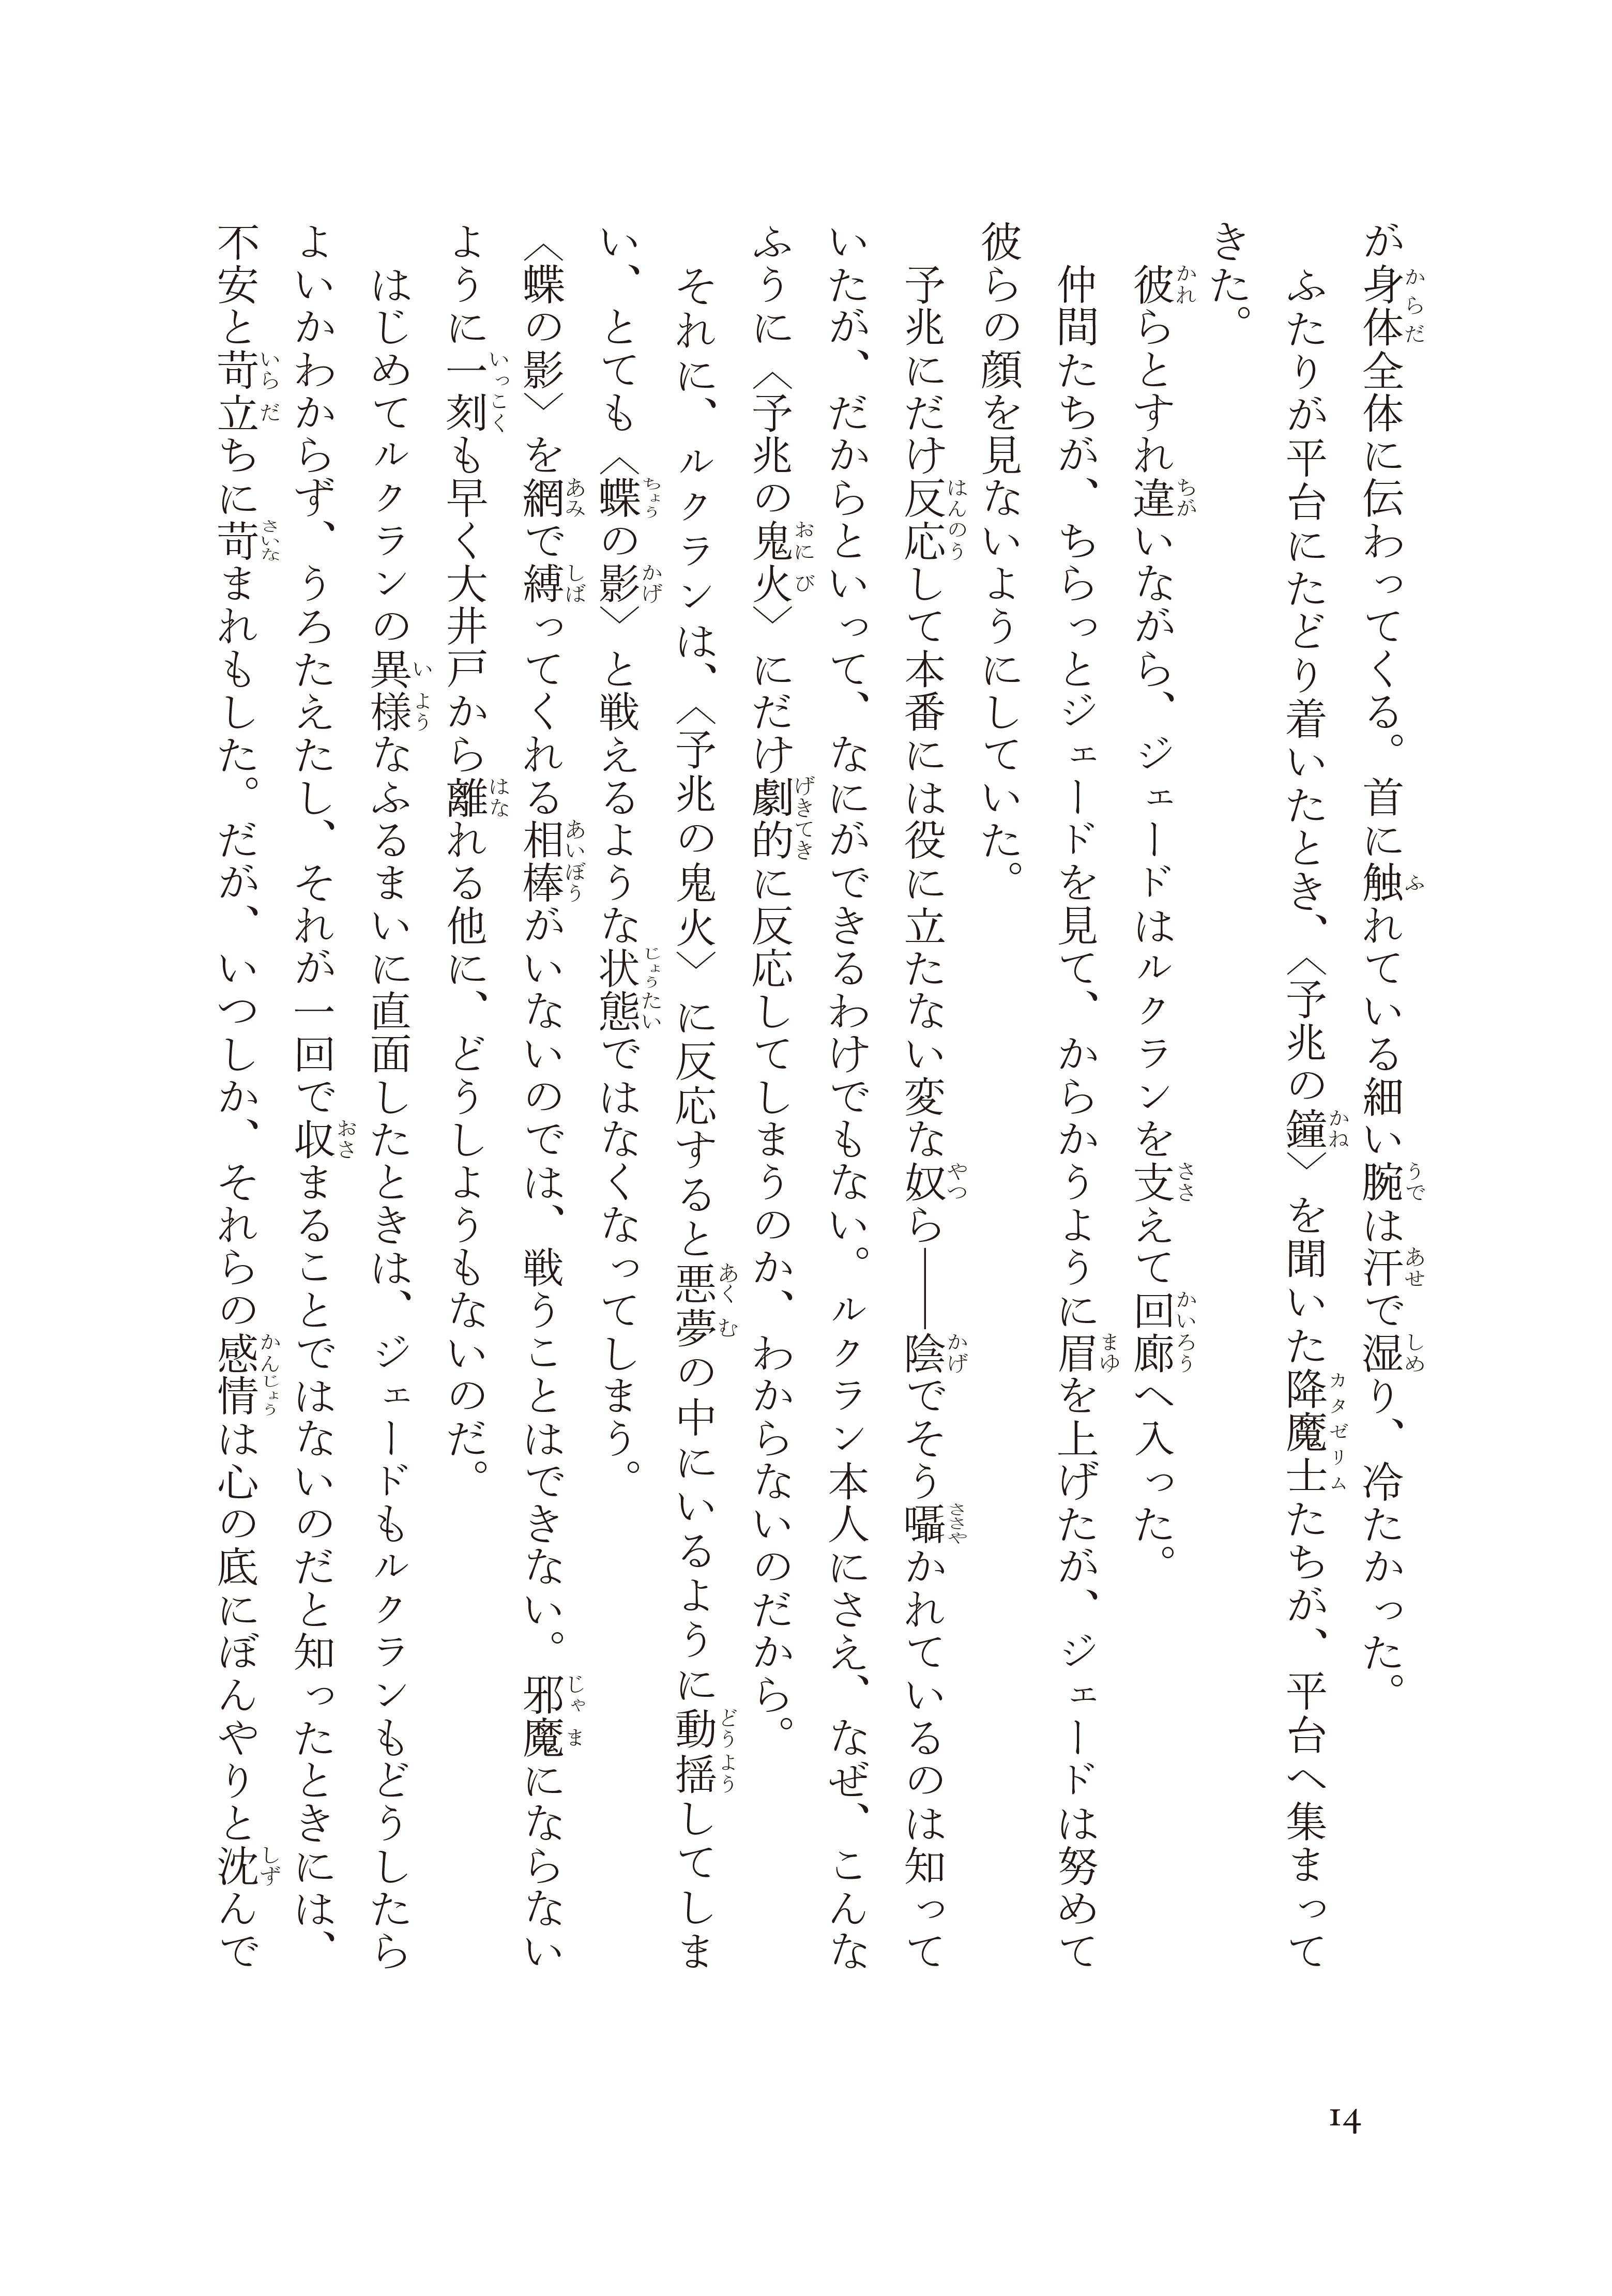 が身体全体に伝わってくる。首に触れている細い腕は汗で湿り、冷たかった。
　ふたりが平台にたどり着いたとき、〈予兆の鐘〉を聞いた降魔士たちが、平台へ集まって
きた。
　彼らとすれ違いながら、ジェードはルクランを支えて回廊へ入った。
　仲間たちが、ちらっとジェードを見て、からかうように眉を上げたが、ジェードは努めて
彼らの顔を見ないようにしていた。
　予兆にだけ反応して本番には役に立たない変な奴ら――陰でそう囁かれているのは知って
いたが、だからといって、なにができるわけでもない。ルクラン本人にさえ、なぜ、こんな
ふうに〈予兆の鬼火〉にだけ劇的に反応してしまうのか、わからないのだから。
　それに、ルクランは、〈予兆の鬼火〉に反応すると悪夢の中にいるように動揺してしま
い、とても〈蝶の影〉と戦えるような状態ではなくなってしまう。
〈蝶の影〉を網で縛ってくれる相棒がいないのでは、戦うことはできない。邪魔にならない
ように一刻も早く大井戸から離れる他に、どうしようもないのだ。
　はじめてルクランの異様なふるまいに直面したときは、ジェードもルクランもどうしたら
よいかわからず、うろたえたし、それが一回で収まることではないのだと知ったときには、
不安と苛立ちに苛まれもした。だが、いつしか、それらの感情は心の底にぼんやりと沈んで
14